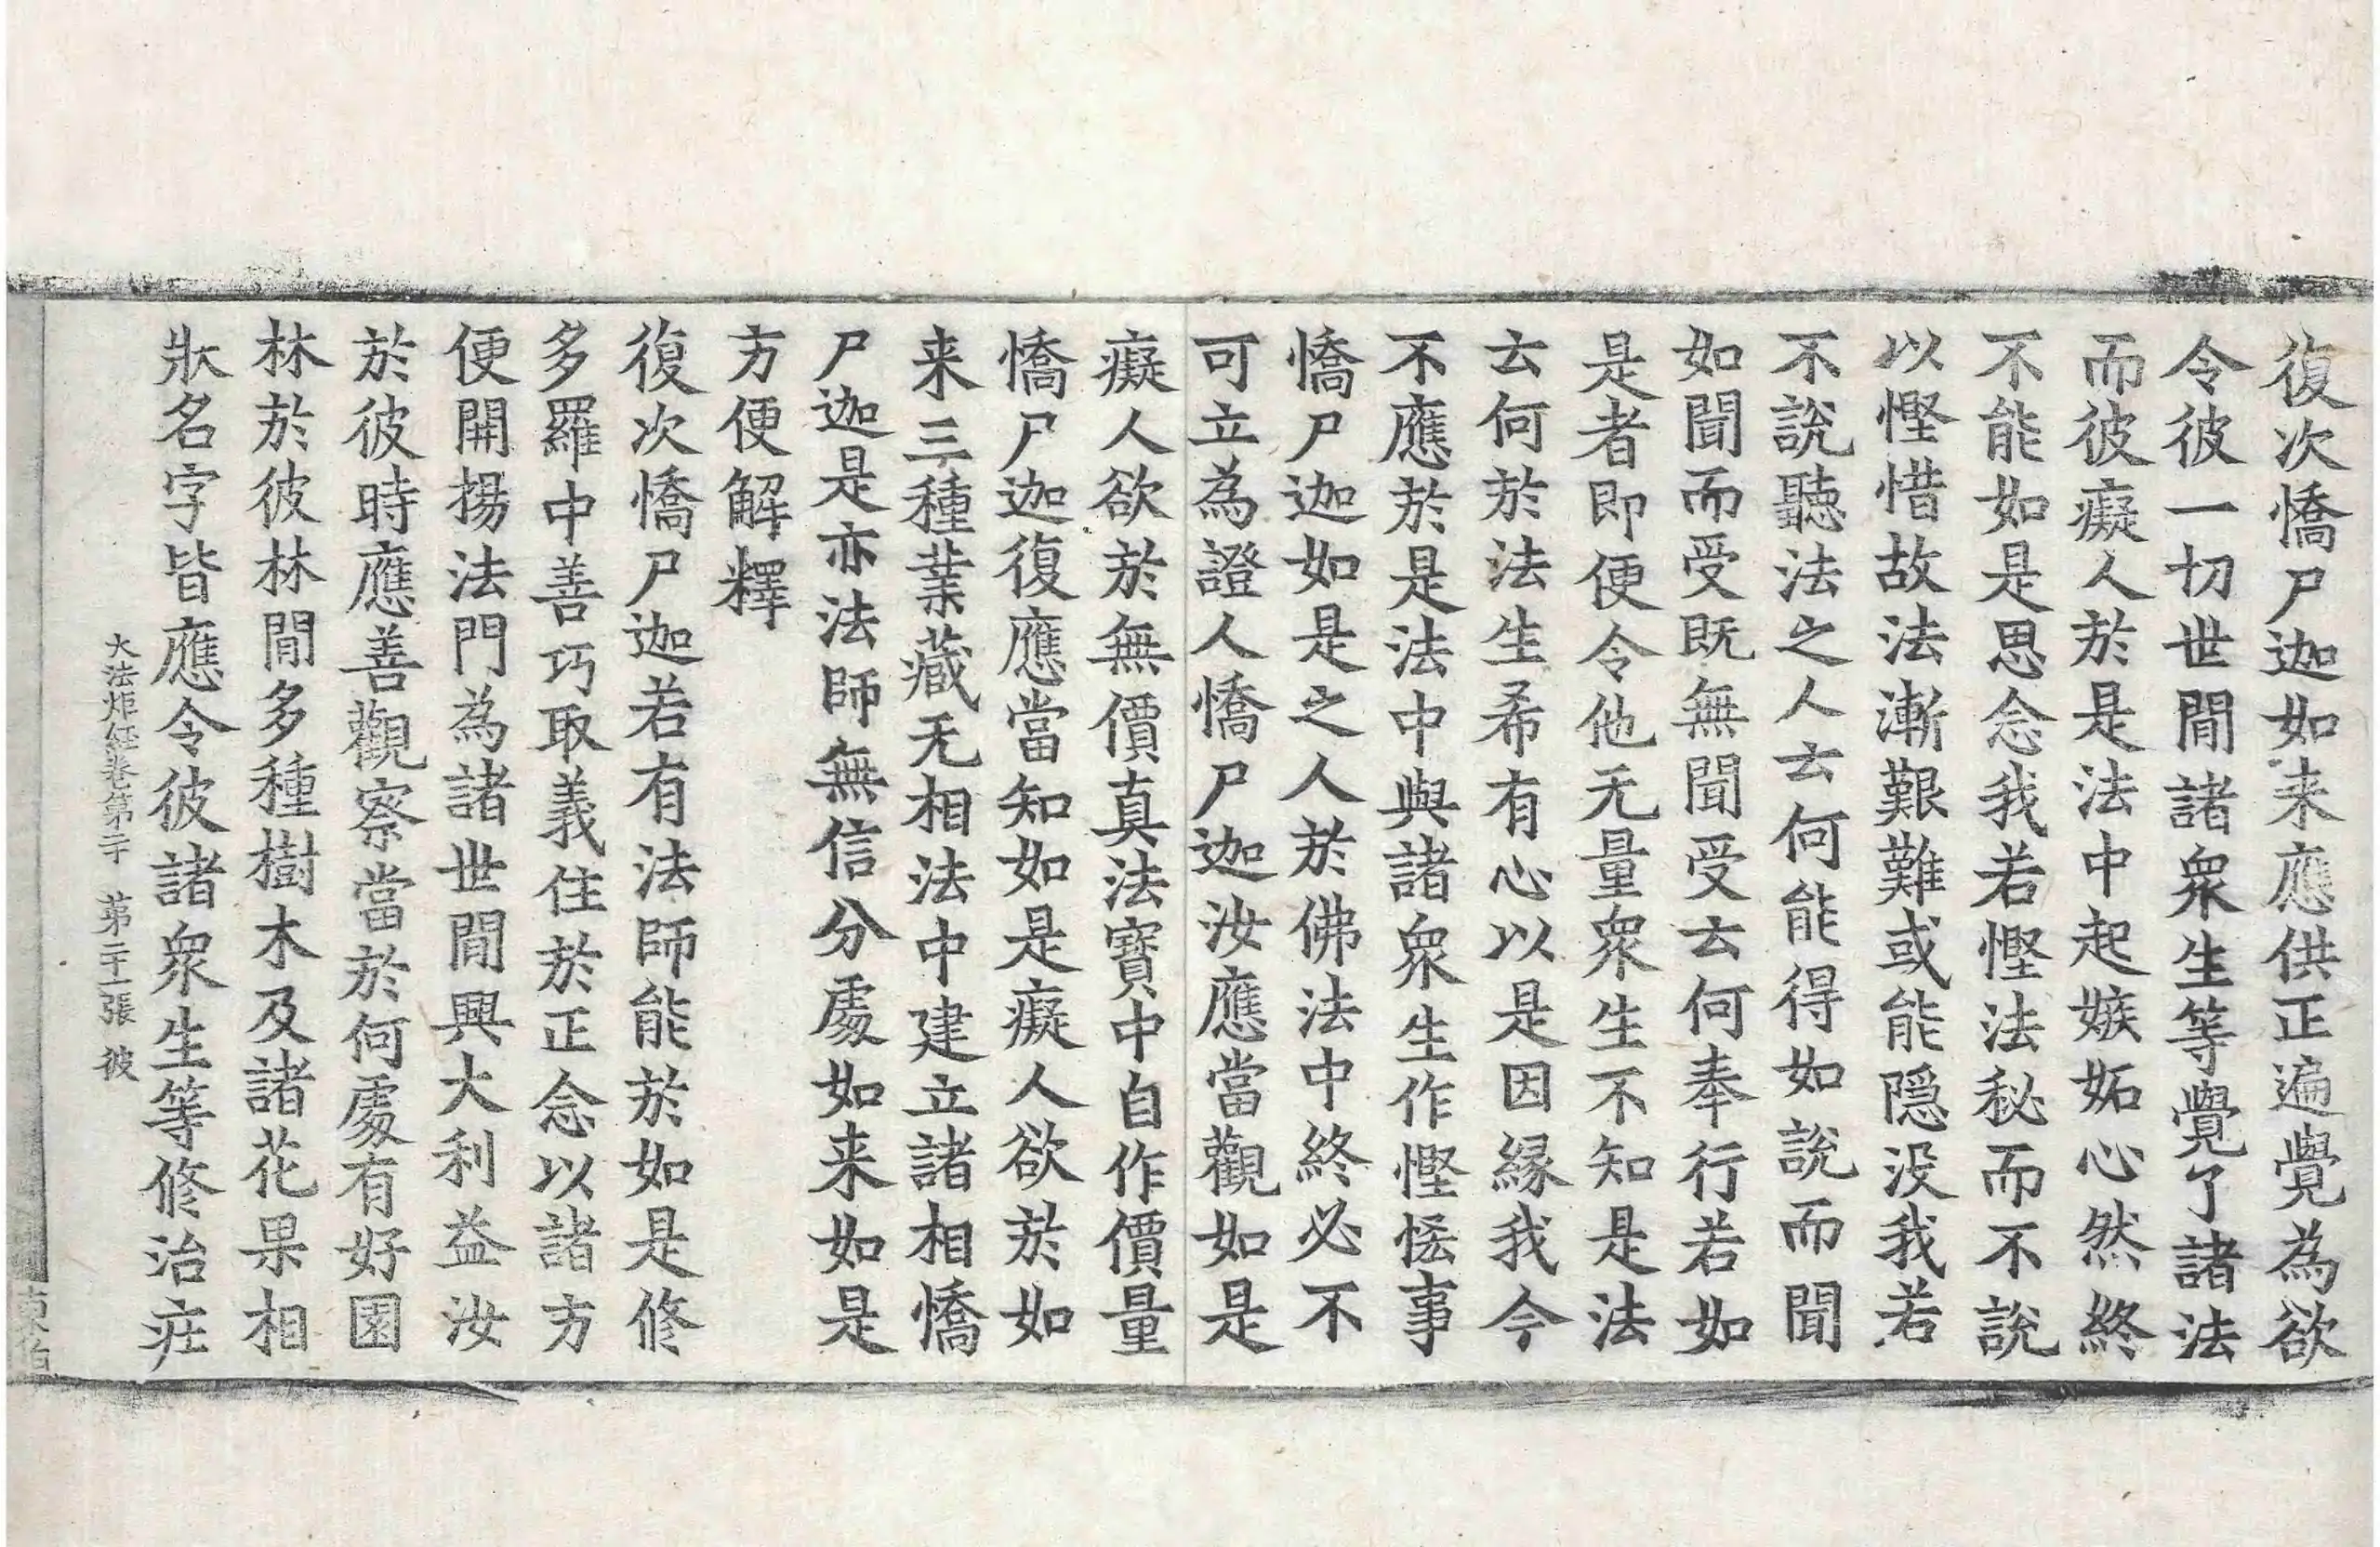 復次憍尸迦如来應供正遍覺為欲
令彼一切世間諸衆生等覺了諸法
而彼癡人於是法中起嫉妬心然終
不能如是思念我若慳法秘而不説
以慳惜故法漸艱難或能隠没我若
不説聽法之人云何能得如説而聞
如聞而受既無聞受云何奉行若如
是者即便令他无量衆生不知是法
云何於法生希有心以是因縁我今
不應於是法中與諸衆生作慳恡事
憍尸迦如是之人於佛法中終必不
可立為證人憍尸迦汝應當觀如是
癡人欲於無價真法寳中自作價量
憍尸迦復應當知如是癡人欲於如
来三種業蔵无相法中建立諸相憍
尸迦是亦法師無信分處如来如是
方便解釋
復次憍尸迦若有法師能於如是修
多羅中善巧取義住於正念以諸方
便開揚法門為諸世間興大利益汝
於彼時應善觀察當於何處有好園
林於彼林間多種樹木及諸花果相
狀名字皆應令彼諸衆生等修治疘
大法炬経卷第二十 苐二十一張 彼